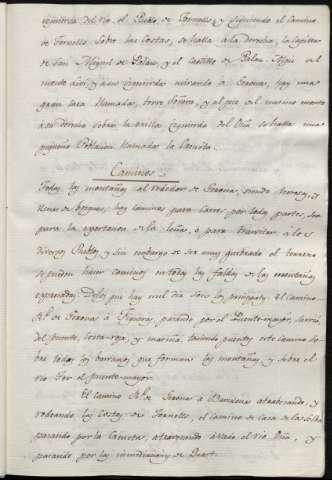 izquierda del rio el Pueblo de Fornells, y siguiendo el camino
de Fornells sobre las Costas, se halla a la derecha, la capilla
de San Miguel de Palau, y el castillo de Palau. Aqui se
y a su izquierda mirando a Gerona, hay una
gran casa llamada, torre y al pie del mismo monte
a su derecha sobre la orilla izquierda del Oña se halla una
pequeña Poblacion llamada la Creueta.
Caminos
Todas las montañas al rededor de Gerona, siendo terrosas, y
llenas de bosques, hay caminos para carros, por todas partes, sea
para la exportacion de la leña, o para transitar a los
diversos Pueblos, y sin embargo de ser muy quebrado el terreno
se pueden hacer caminos en todas las faldas de las montañas
expresadas. De los que hay en el dia son los principales: el camino
Rl. de Gerona a Figueras, pasando por el Puente-mayor, Sarria,
del puente, Costa-roja, y marina, teniendo puentes este camino so-
bre todos los barrancos que forman las montañas, y sobre el
rio Ter el puente-mayor.
El camino Rl. de Gerona a Barcelona atrabesando, y
rodeando las Costas de Fornells, el camino de Casa de la Selva
pasando por la Creueta, atravesando a vado el rio Oña, y
pasando por las inmediaciones de Quart.